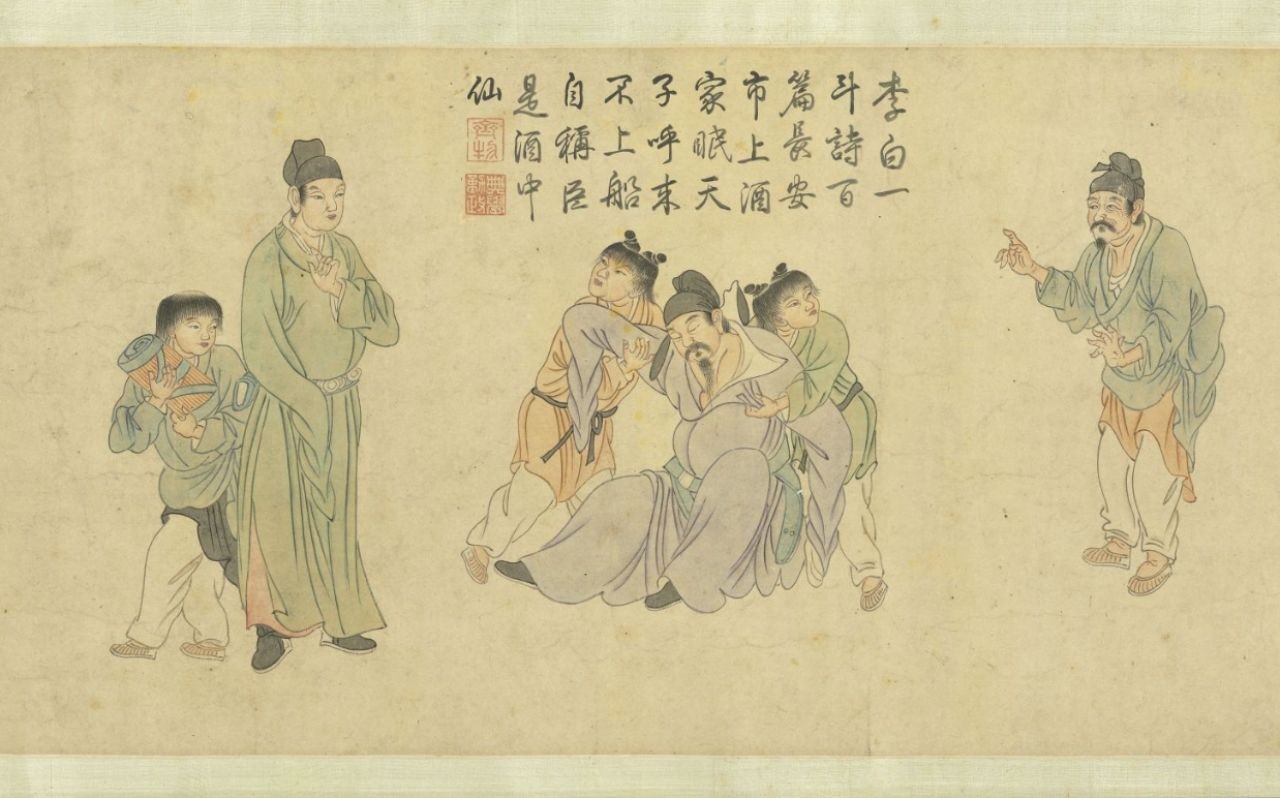 李白一
斗詩百
篇長安
市上酒
家眠天
子呼来
不上船
自稱臣
是酒中
仙
齊物